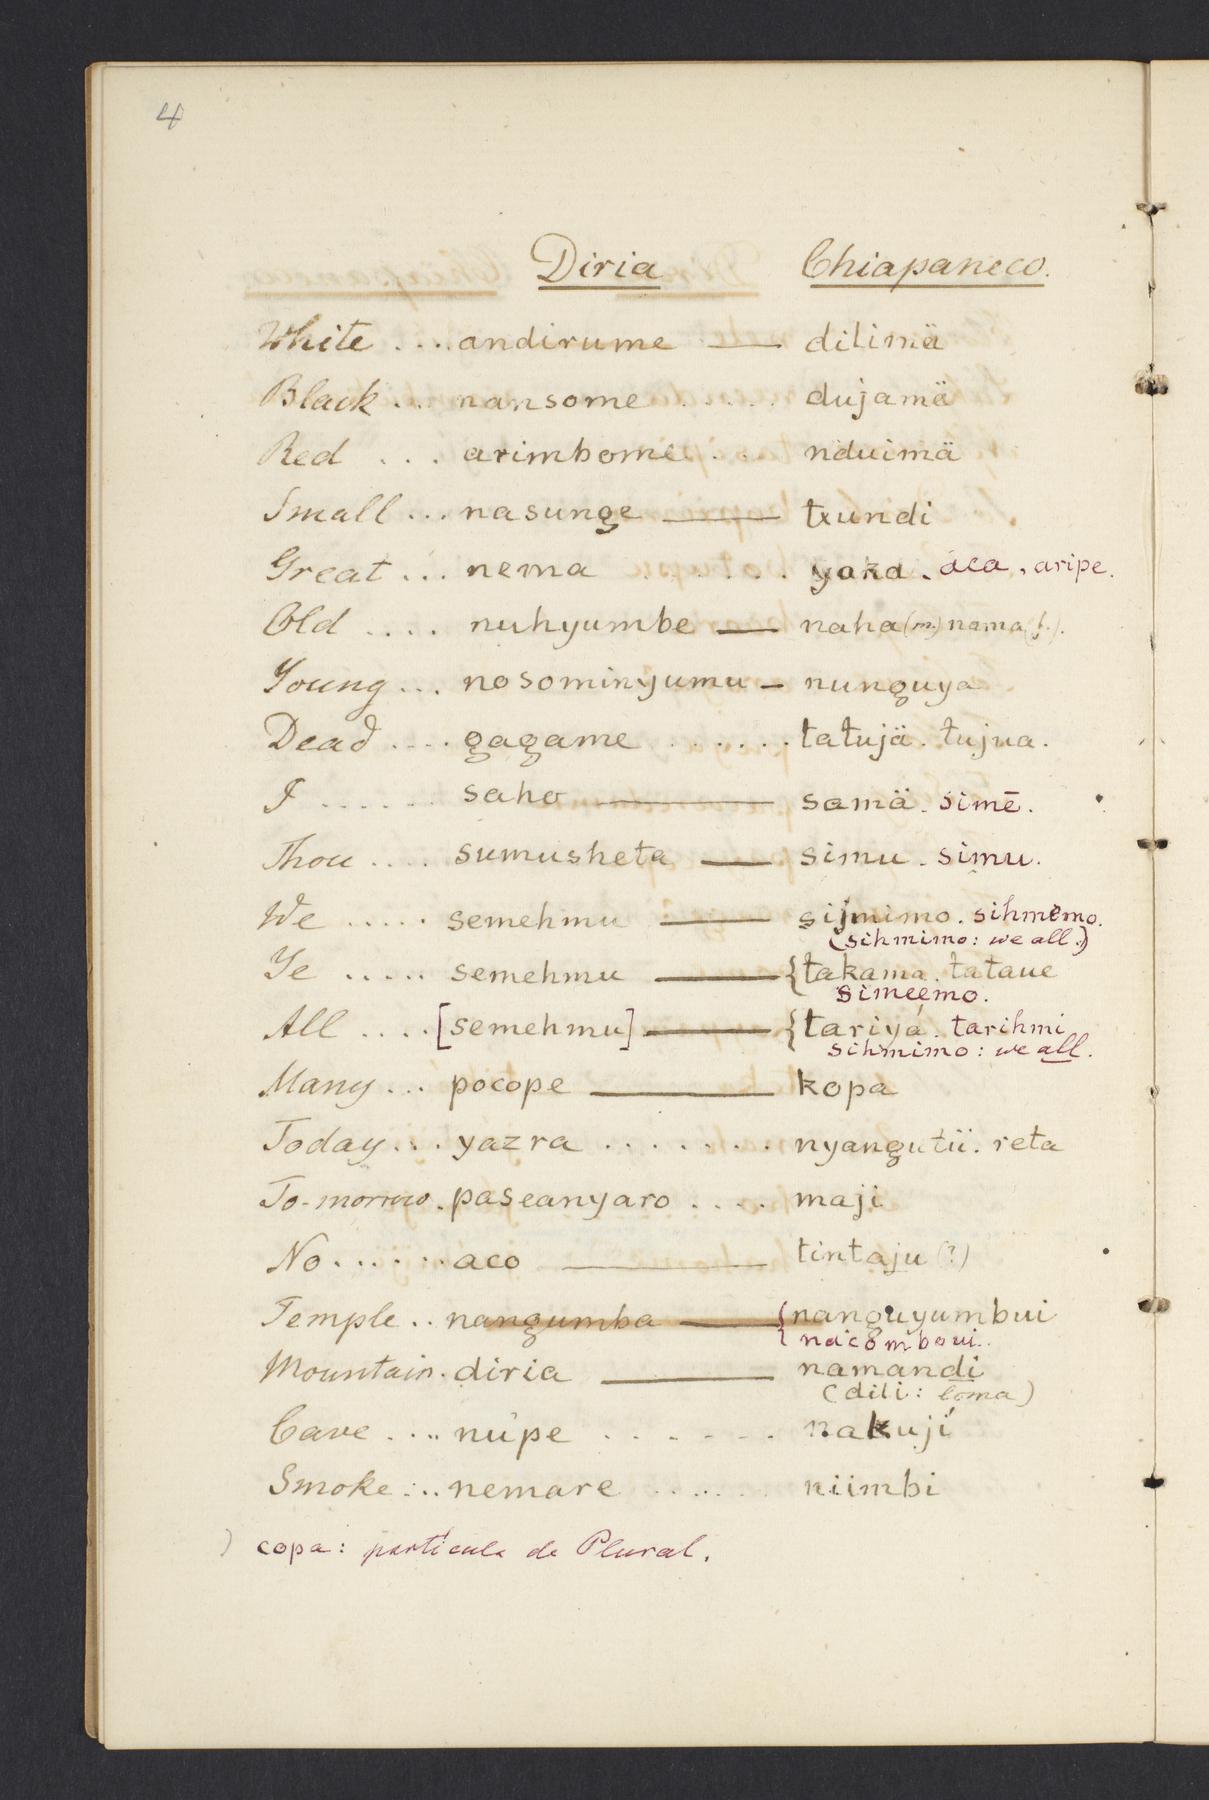 4
Diria Chiapaneco.
White ... andirume —— dilimä
Black ... nansome ..... dujamä
Red ... arimbome ... nduimä
Small ... nasunge —— txundi
Great ... nema ...... yaka. áca, aripe.
Old .... nuhyumbe — naha (m.) nama (f.).
Young ... nosominyumu – nunguya
Dead .... gagame ...... tatujä. tujua.
I ...... saho —— samä. simē.
Thou .... sumusheta —— simu. simu.
We ..... semehmu —— sijmimo. sihmemo.
(sihmimo: we all.)
Ye ..... semehmu —— {takama. tataue
simeemo.
All .... [semehmu] —— {tariyá. tarihmi
sihmimo: we all.
Many ... pocope —— kopa
Today ... yazra ....... nyangutii. reta
To-morrow. paseanyaro .... maji
No ...... aco —— tintaju (?)
Temple .. nangumba —— {nanguyumbui
nacomboui.
Mountain. diria —— namandi
(dili: loma)
Cave .... núpe ...... nakují
Smoke ... nemare ...... niimbi
) copa: partícula de Plural.